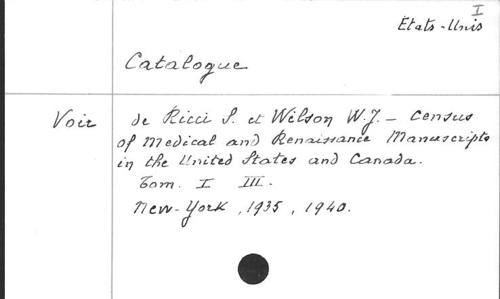 I
Etats-Unis
Catalogue
Voir de Ricci S. et Wilson W.J. - Census
of Medical and Renaissance Manuscripts
in the United States and Canada.
Tom. I III.
New-York, 1935, 1940.